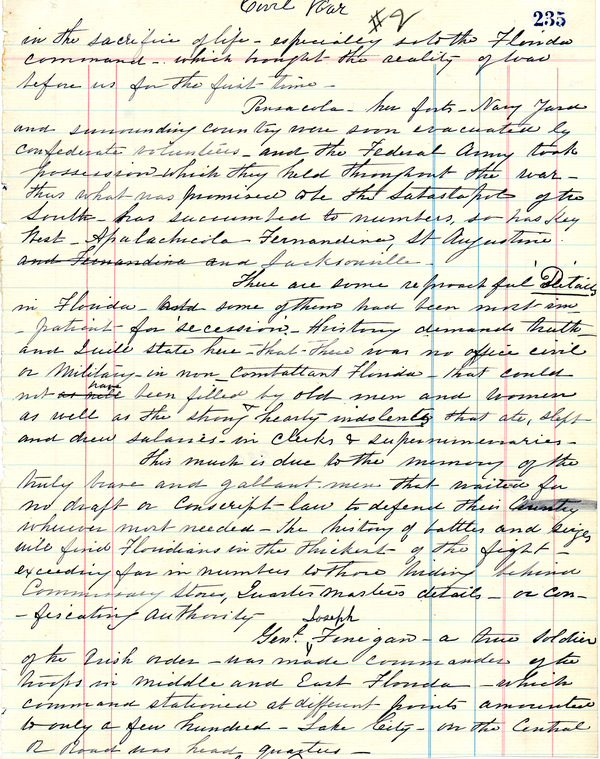 Civil War
#2
235
in the sacrifice of life - especially so to the Florida
command - which brought the reality of war
before us for the first time -
Pensacola - her forts - Navy Yard
and surrounding country were soon evacuated by
confederate volunteers - and the Federal Army took
possession which they held throughout the war -
thus what was promised to be the Sabastapol of the
South - has succumbed to numbers, so has Key
West - Apalachicola - Fernandina, St Augustine
and Fernandina and Jacksonville -
There are some reproachful "Details"
in Florida - some of them had been most im
- patient for secession - History demands truth
and I will state here - that there was no office civil
or Military - in non Combattant Florida - that could
not have been filled by old men and women
as well as the strong hearty indolents that ate, slept
and drew salaries - in Clerks & supernumeraries -
This much is due to the memory of the
truly brave and gallant men that waited for
no draft or Conscript - law to defend their Country
wherever most needed - The history of battles and Seiges
will find Floridians in the thickest of the fight -
exceeding far in numbers to those hiding behind
Commissary Stores, Quarter masters details - or con-
- fiscating authority
Genl. Joseph Finigan - a true soldier
of the Irish order - was made commander of the
troops in middle and East Florida - which
command stationed at different points amounted
to only a few hundred - Lake City - on the Central
R Road was head quarters -